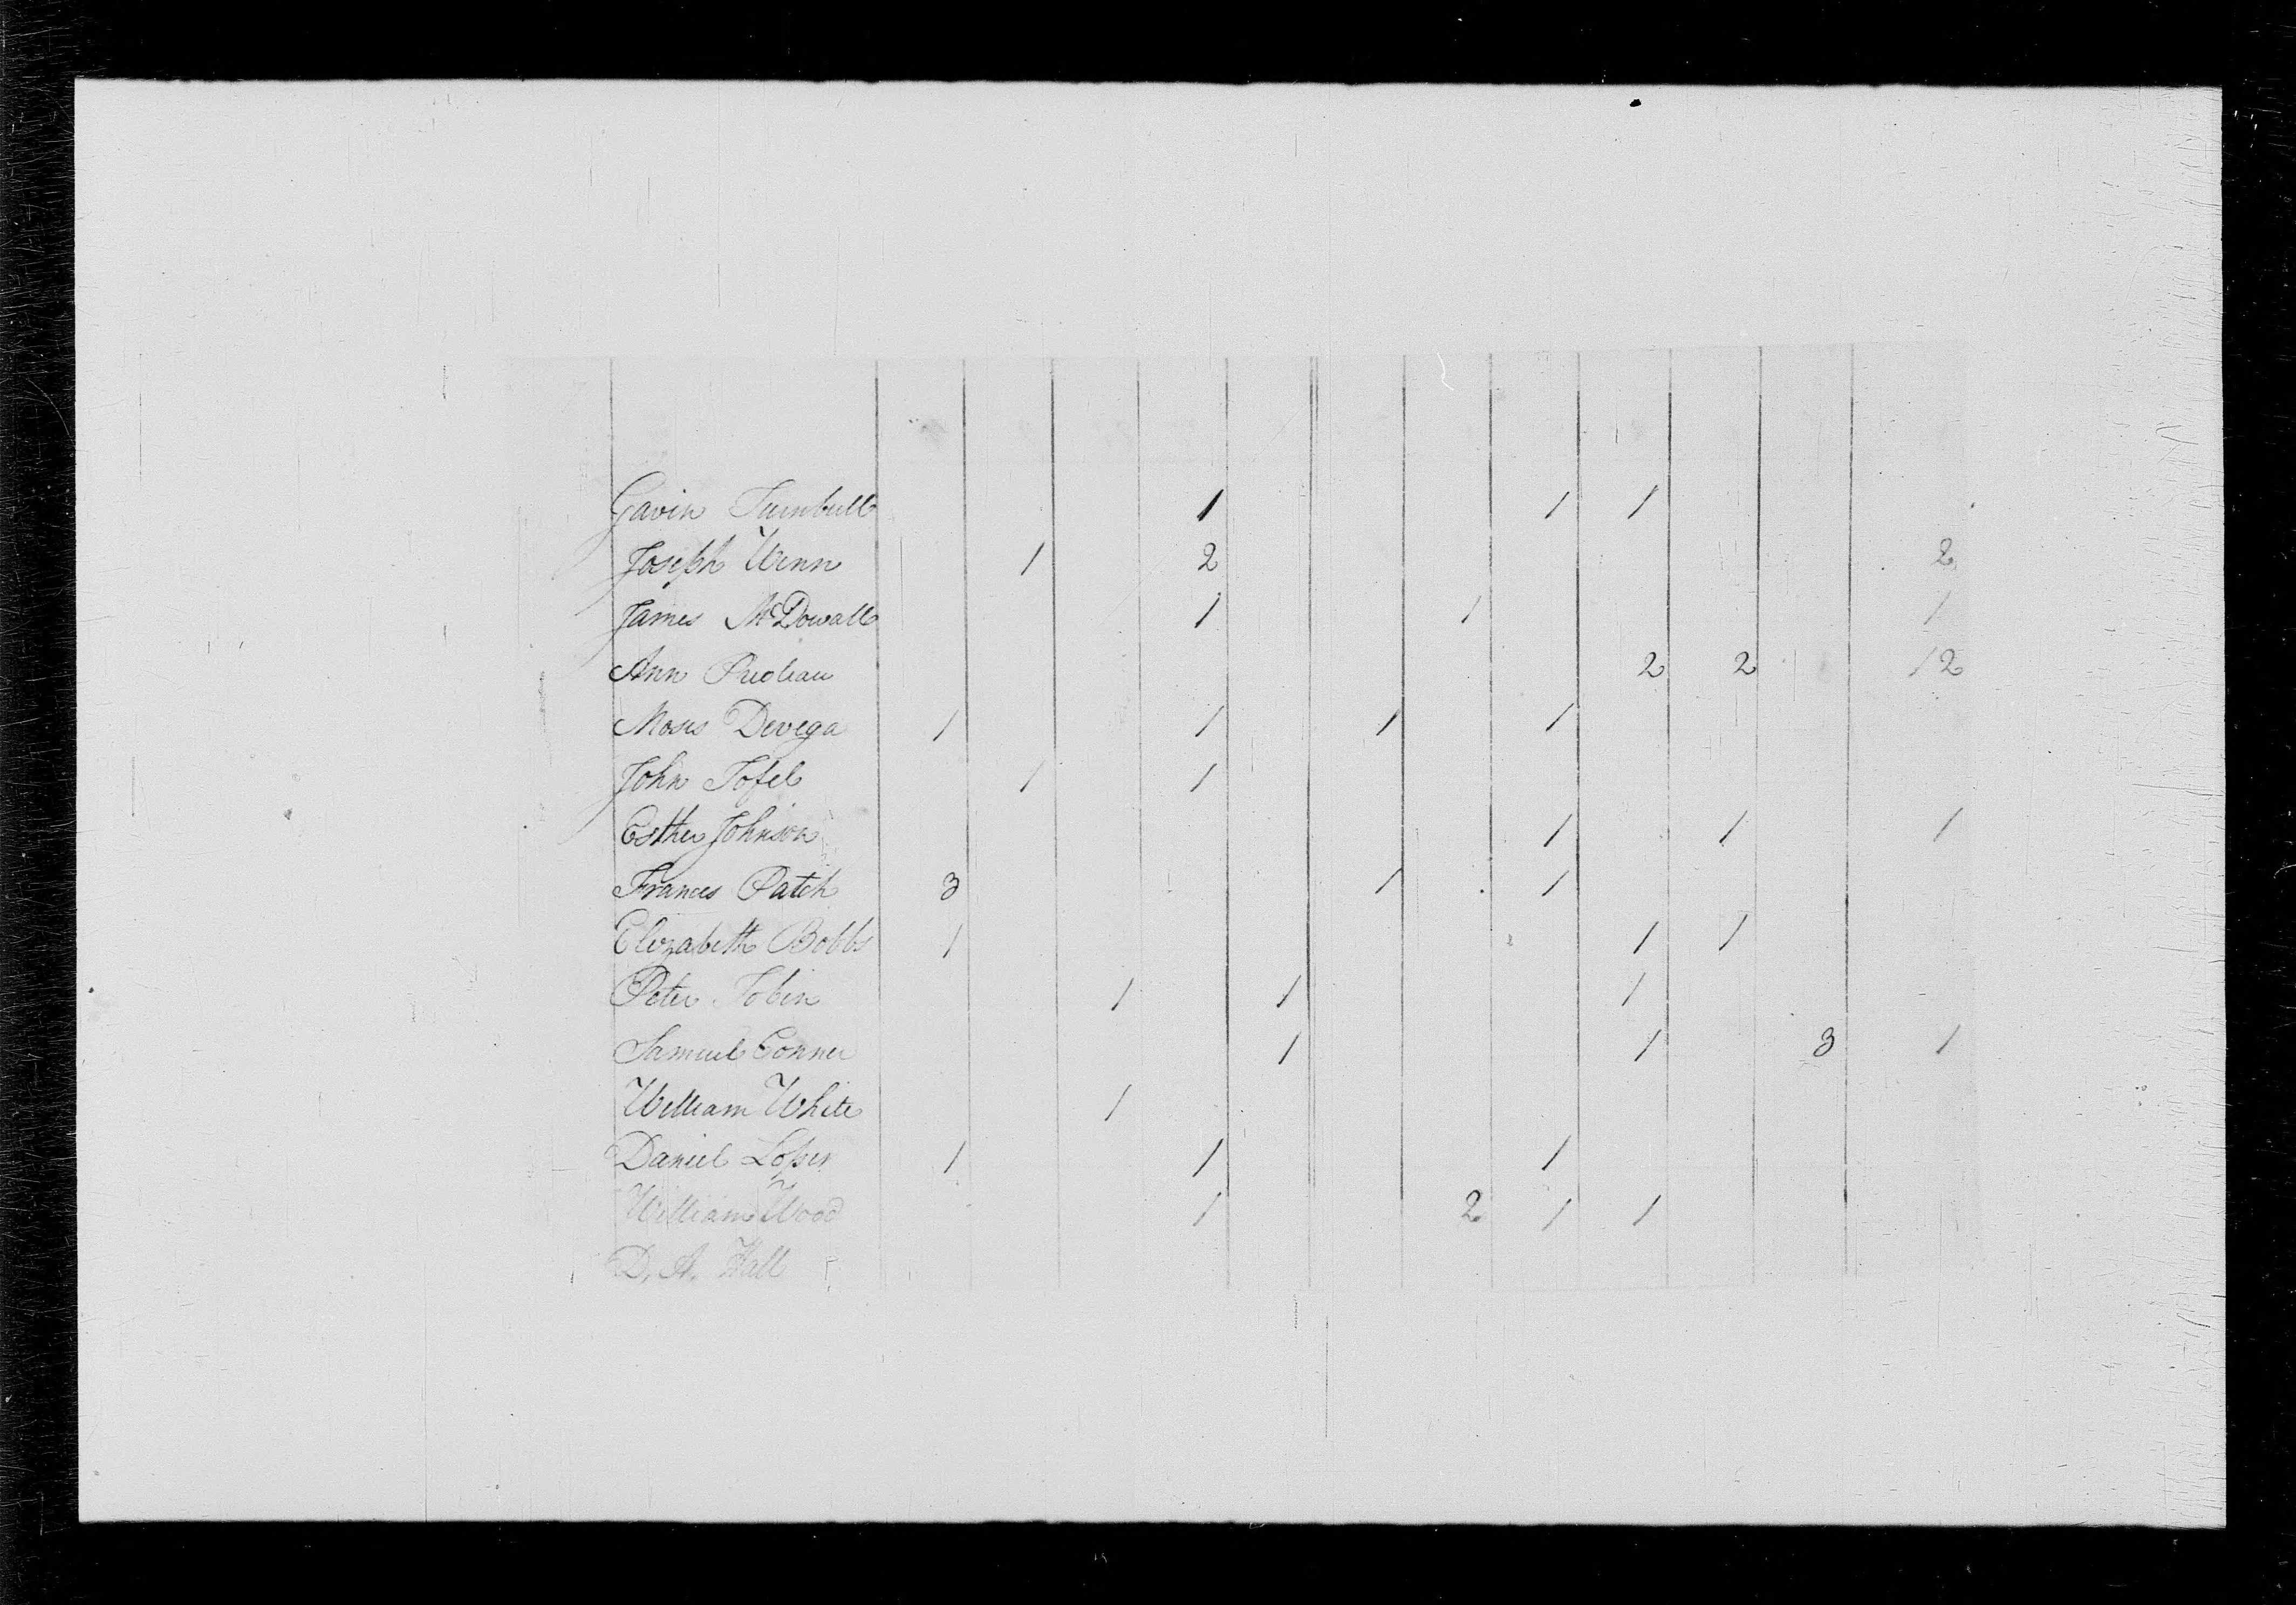 Gavin Turnbull 1 1 1
Joseph Wenn 1 2 2
James McDowall 1 1 1
Ann Prioleau 2 2 12
Moses Devega 1 1 1 1
John Tofel 1 1
Esther Johnson 1 1 1
Frances Patch 3 1 1
Elizabeth Bobbs 1 1 1
Peter Tobin 1 1 1
Samuel Conner 1 1 3 1
William White 1
Daniel Loper 1 1 1
William Wood 1 2 1 1
D. A. Hall